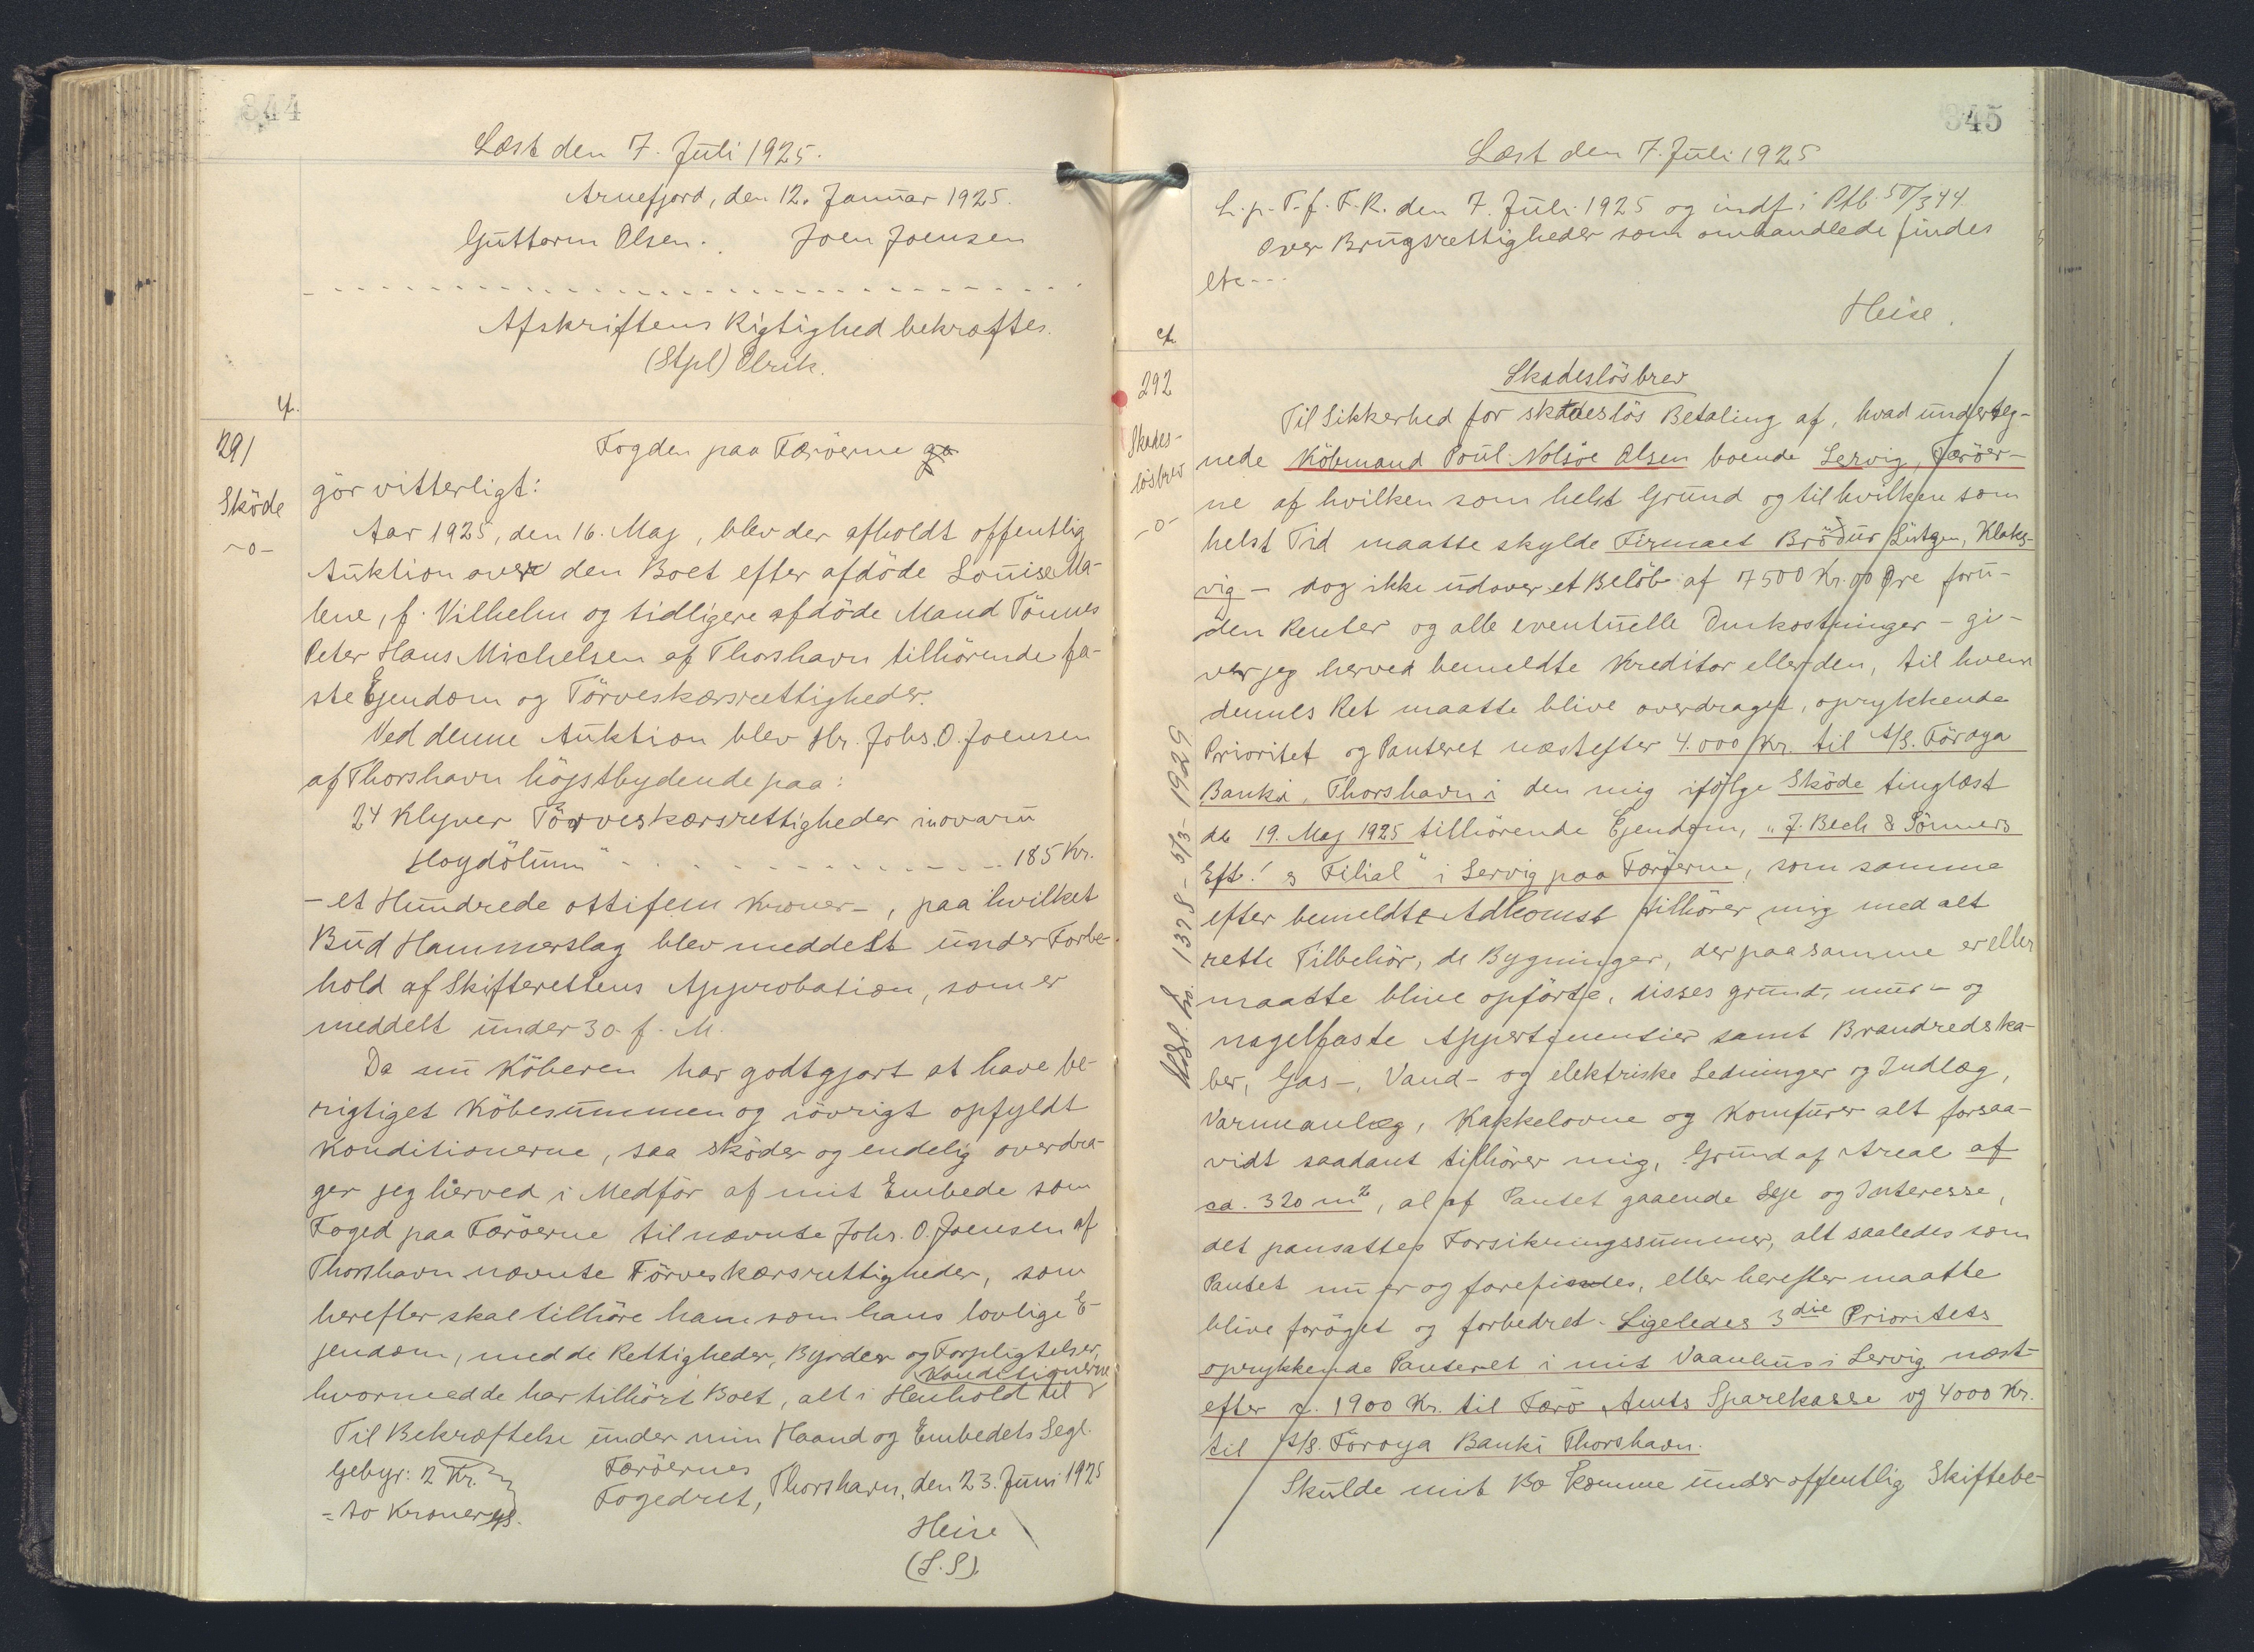 344
Læst den 7. Juli 1925.
Arnefjord, den 12. Januar 1925.
Guttorm Olsen. Joen Joensen
Afskriftens Rigtighed bekræftes.
(Stpl) Olrik.
291
Sköde
-o-
Fogden paa Færöerne
gör vitterligt:
Aar 1925, den 16. Maj, blev der afholdt offentlig
Auktion over den Boet efter afdöde Louise Ma-
lene, f. Vilhelm og tidligere afdöde Mand Tönnes
Peter Hans Michelsen af Thorshavn tilhörende fa-
ste Ejendom og Törveskærsrettigheder.
Ved denne Auktion blev Hr. Johs. O. Joensen
af Thorshavn höjstbydende paa:
24 Klyver Törveskærsrettigheder
Hoydölum" - - - 185 Kr.
- et Hundrede ottifem Kroner -, paa hvilket
Bud Hammerslag blev meddelt under Forbe-
hold af Skifterettens Approbation, som er
meddelt under 30. f. M.
Da nu Köberen har godtgjort at have be-
rigtiget Köbesummen og iövrigt opfyldt
Konditionerne, saa sköder og endelig overdra-
ger jeg herved i Medför af mit Embede som
Foged paa Færöerne til nævnte Johs. O. Joensen af
Thorshavn nævnte Törveskærsrettigheder, som
herefter skal tilhöre ham som hans lovlige E-
jendom, med de Rettigheder, Byrder og Forpligtelser,
hvormed de har tilhört Boet, alt i Henhold til Konditionerne
Til Bekræftelse under min Haand og Embedets Segl.
Gebyr: 2 Kr.
= to Kroner
Færöernes
Fogedret, Thorshavn, den 23. Juni 1925
Heise
(L.S).
345
Læst den 7. Juli 1925
L. p. T. f. F. R. den 7. Juli 1925 og indf. i Ptb. 50/344.
Over Brugsrettigheder som omhandlede findes
etc ---
Heise.
292
Skades-
lösbrev
-o-
Skadeslösbrev
Til Sikkerhed for skadeslös Betaling af, hvad underteg-
nede Köbmand Poul Nolsöe Olsen boende Lervig, Færöer-
ne af hvilken som helst Grund og til hvilken som
helst Tid maatte skylde Firmaet Bröður Lützen, Klaks-
vig - dog ikke udover et Belöb af 7500 Kr. 00 Öre foru-
den Renter og alle eventuelle Omkostninger - gi-
ver jeg herved bemeldte Kreditor eller den, til hvem
dennes Ret maatte blive overdraget, oprykkende
Prioritet og Panteret næstefter 4.000 Kr. til A/S. Föroya
Banki, Thorshavn i den mig ifölge Sköde tinglæst
de 19. Maj 1925 tilhörende Ejendom, "J. Bech & Sönners
Eftf.'s Filial" i Lervig paa Færöerne, som samme
efter bemeldte Adkomst tilhörer mig med alt
rette Tilbehör, de Bygninger, der paa samme er eller
maatte blive opförte, disses grund-, mur- og
nagelfaste Appertinentier samt Brandredska-
ber, Gas-, Vand- og elektriske Ledninger og Indlæg,
Varmeanlæg, Kakkelovne og Komfurer alt forsaa-
vidt saadant tilhörer mig, Grund af Areal af
ca. 320 m², al af Pantet gaaende Leje og Interesse,
det pansattes Forsikringssummer, alt saaledes som
Pantet nu er og forefindes, eller herefter maatte
blive foröget og forbedret. Ligeledes 3die Prioritets
oprykkende Panteret i mit Vaanhus i Lervig næst-
efter 1900 Kr. til Færö Amts Sparekasse og 4000 Kr.
til A/S. Föroya Banki Thorshavn.
Skulde mit Bo komme under offentlig Skiftebe-
1378 - 5/3 - 1929